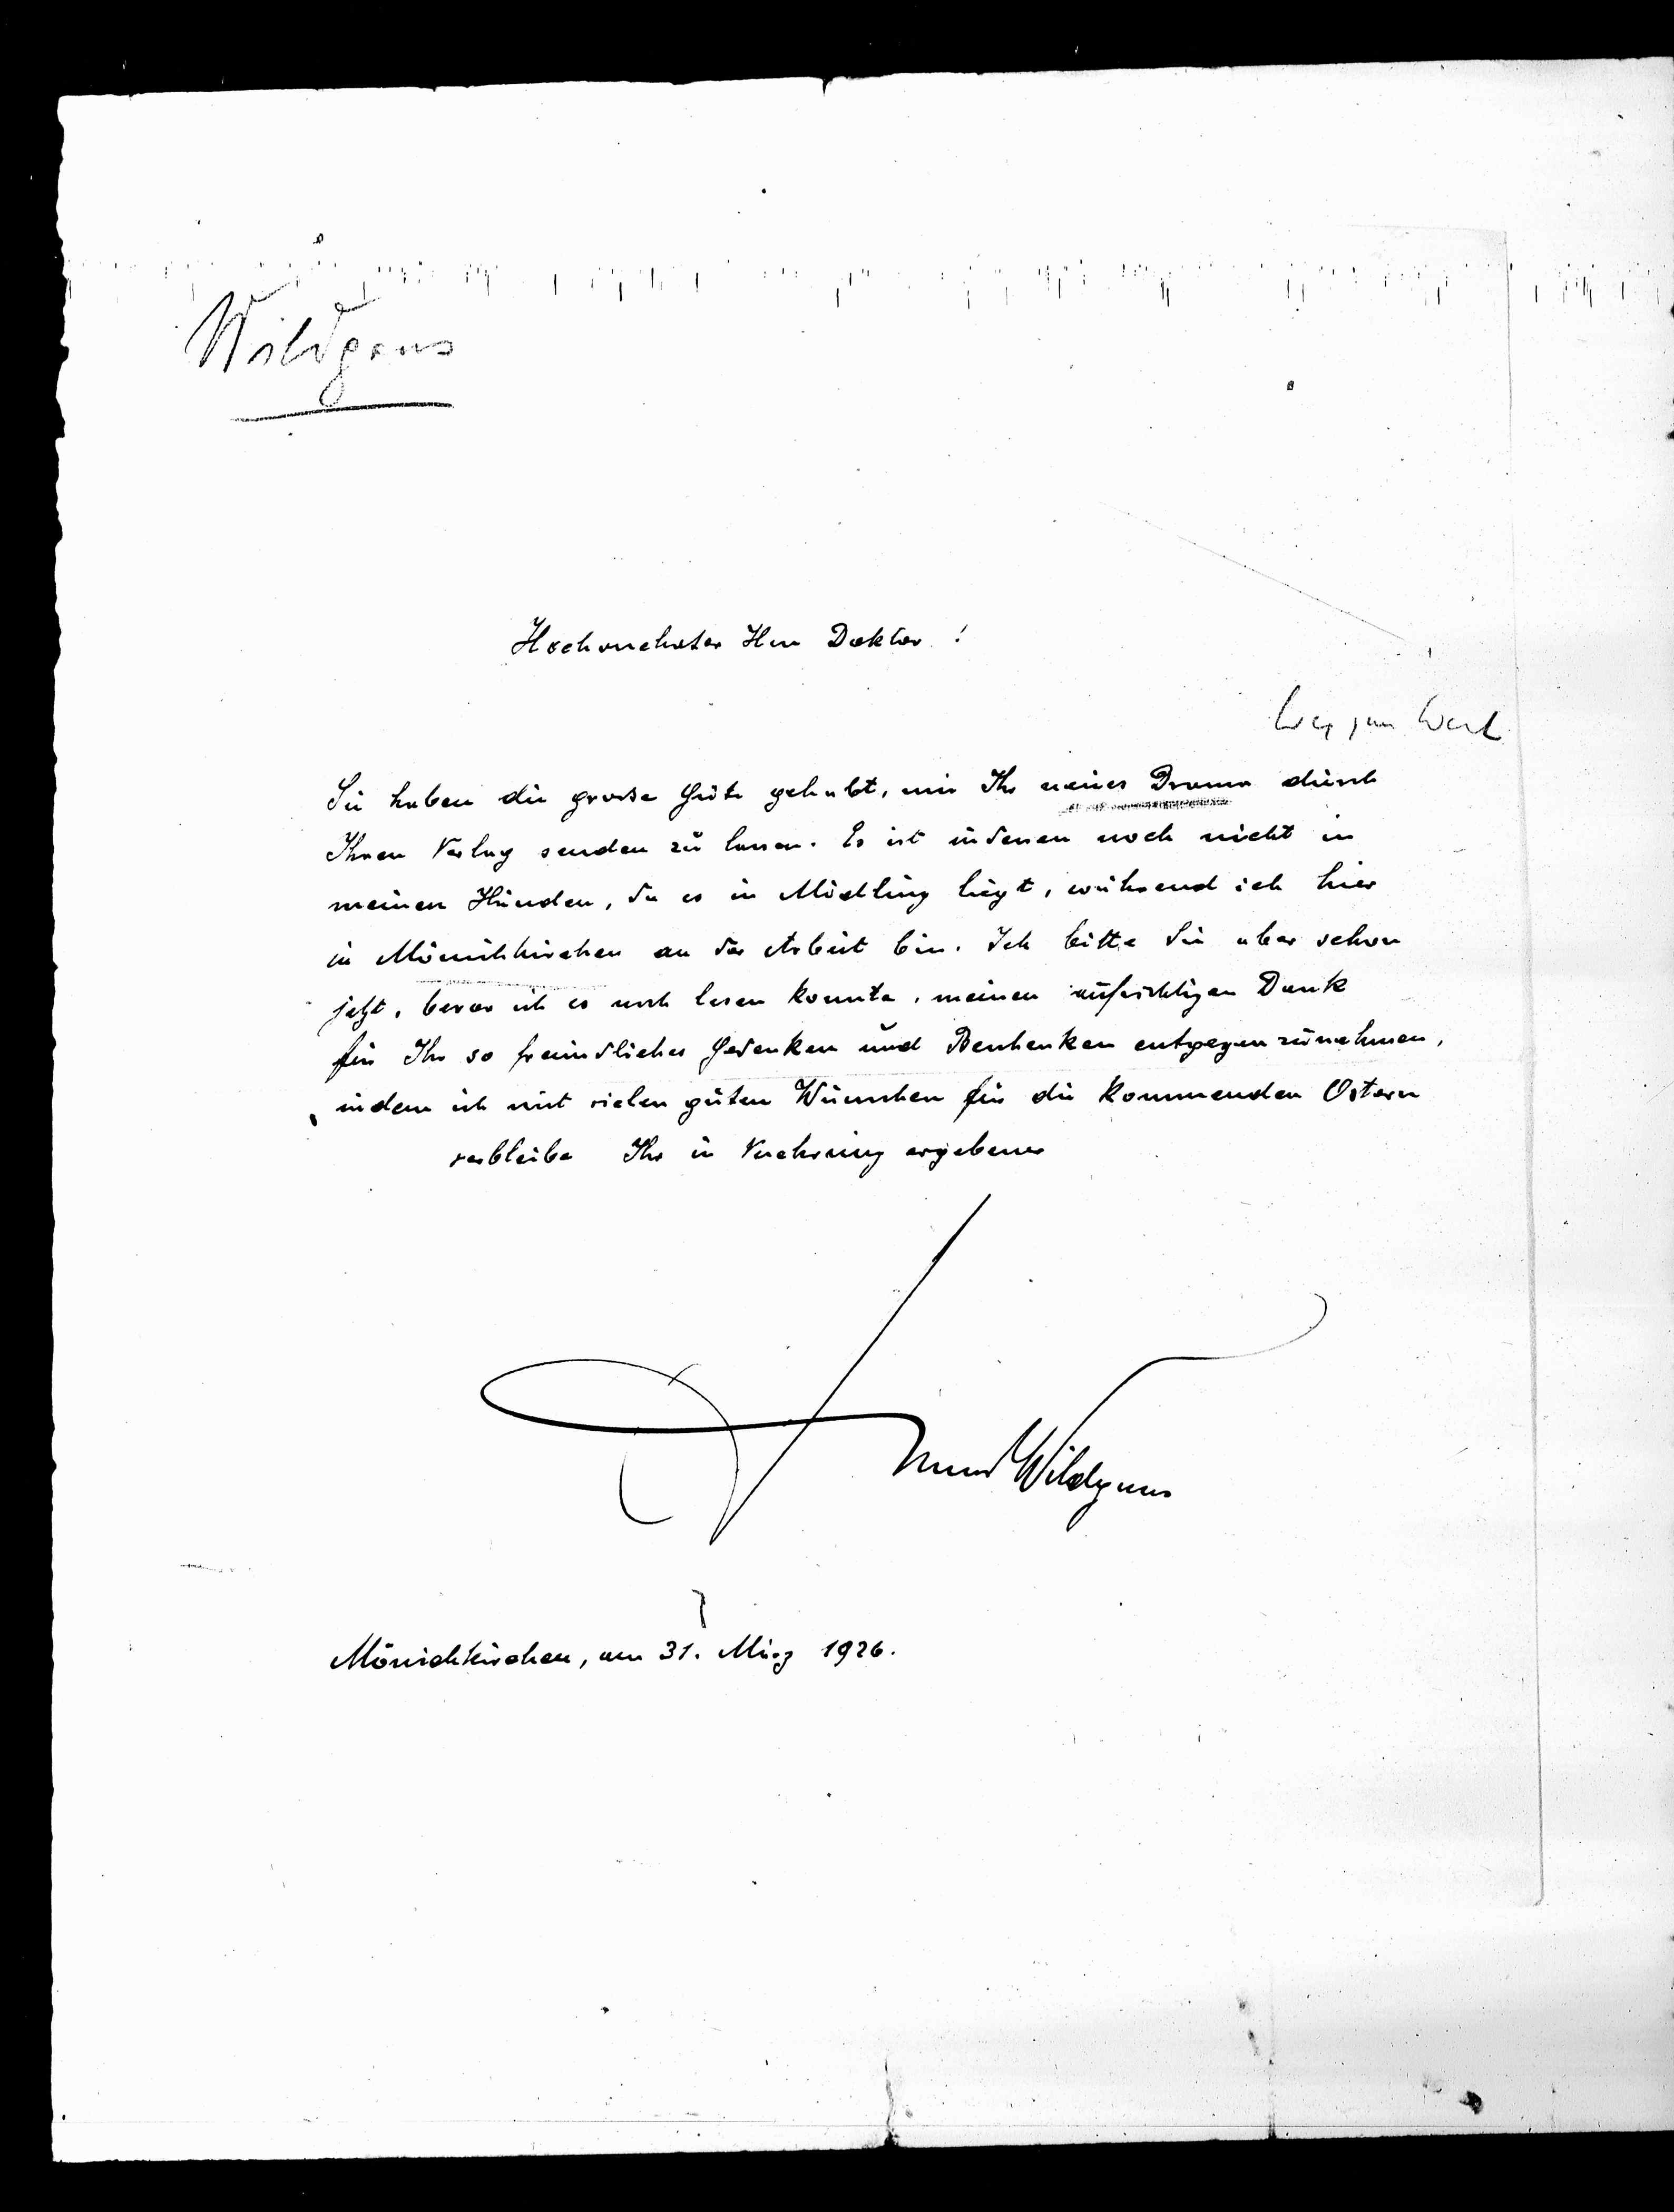 Wildgans
Hochverehrter Herr Doktor!
Weg zum
Sie haben die grosse Güte gehabt, mir Ihr neues Drama durch
Ihren Verlag senden zu lassen. Es ist indessen noch nicht in
meinen Händen, da es in Mödling liegt, während ich hier
in Mönichkirchen an der Arbeit bin. Ich bitte Sie aber schon
jetzt, bevor ich es noch lesen konnte, meinen aufrichtigen Dank
für Ihr so freundliches Gedenken und Beschenken entgegenzunehmen,
indem ich mit vielen guten Wünschen für die kommenden Ostern
verbleibe Ihr in Verehrung ergebener
Anton Wildgans
Mönichkirchen, am 31. März 1926.